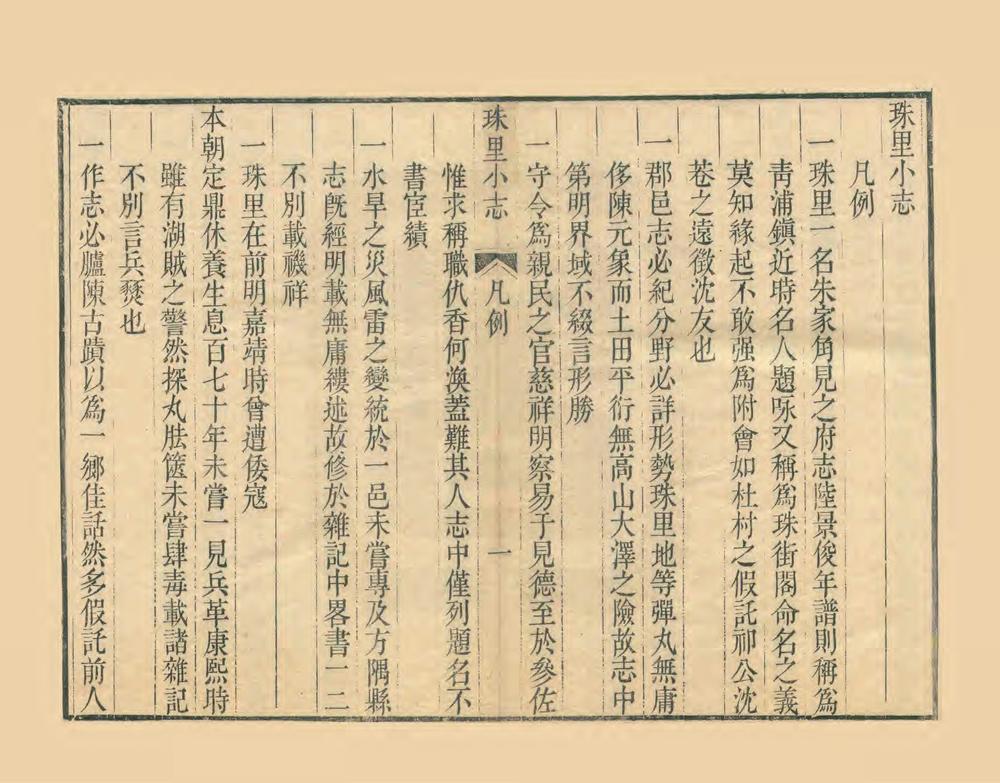 珠里小志
凡例
一珠里一名朱家角見之府志陸景俊年譜則稱爲
青浦鎮近時名人題咏又稱爲珠街閣命名之義
莫知緣起不敢强爲附會如杜村之假託祁公沈
巷之遠徵沈友也
一郡邑志必紀分野必詳形勢珠里地等彈丸無庸
侈陳元象而土田平衍無高山大澤之險故志中
第明界域不綴言形勝
一守令爲親民之官慈祥明察易于見德至於參佐
惟求稱職仇香何渙蓋難其人志中僅列題名不
書宦績
珠里小志 凡例 一
一水旱之災風雷之變統於一邑未嘗專及方隅縣
志旣經明載無庸縷述故修於雜記中畧書一二
不別載禨祥
一珠里在前明嘉靖時曾遭倭寇
本朝定鼎休養生息百七十年未嘗一見兵革康熙時
雖有湖賊之警然探丸胠篋未嘗肆毒載諸雜記
不別言兵燹也
一作志必臚陳古蹟以爲一鄉佳話然多假託前人